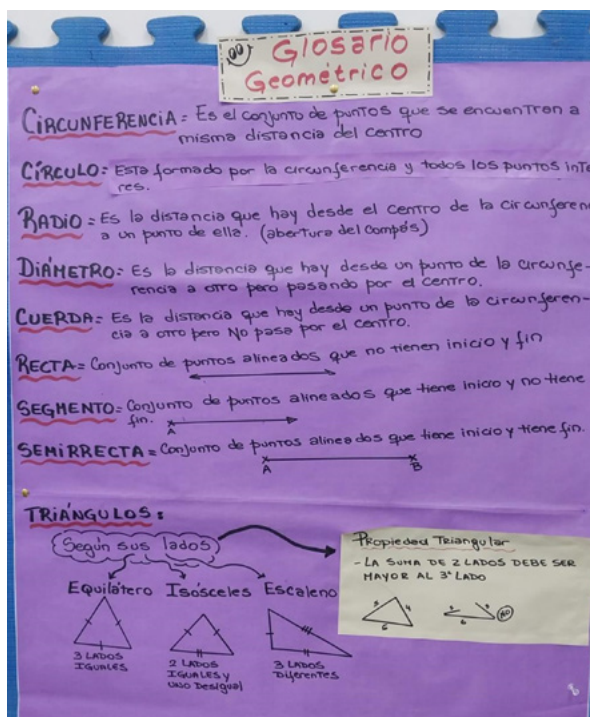 Glosario
Geométrico
CÍRCUNFERENCIA = Es el conjunto de puntos que se encuentran a
misma distancia del centro
CÍRCULO: Esta formado por la circunferencia y todos los puntos inte
res.
RADIO = Es la distancia que hay desde el centro de la circunferen
a un punto de ella. (abertura del compás)
DIÁMETRO: Es la distancia que hay desde un punto de la circunfe-
rencia a otro pero pasando por el centro.
CUERDA= Es la distancia que hay desde un punto de la circunferen-
cia a otro pero No pasa por el centro.
RECTA= Conjunto de puntos alineados que no tienen inicio y fin
SEGMENTO= Conjunto de puntos alineados que tiene inicio y no tiene
fin.
A
SEMIRRECTA = Conjunto de puntos alineados que tiene inicio y tiene fin.
A B
TRIÁNGULOS:
Según sus lados
Equilátero Isósceles Escaleno
3 LADOS
IGUALES
2 LADOS
IGUALES y
UNO Desigual
3 LADOS
Diferentes
Propiedad Triangular
- LA SUMA DE 2 LADOS DEBE SER
MAYOR AL 3° LADO
4
6
6